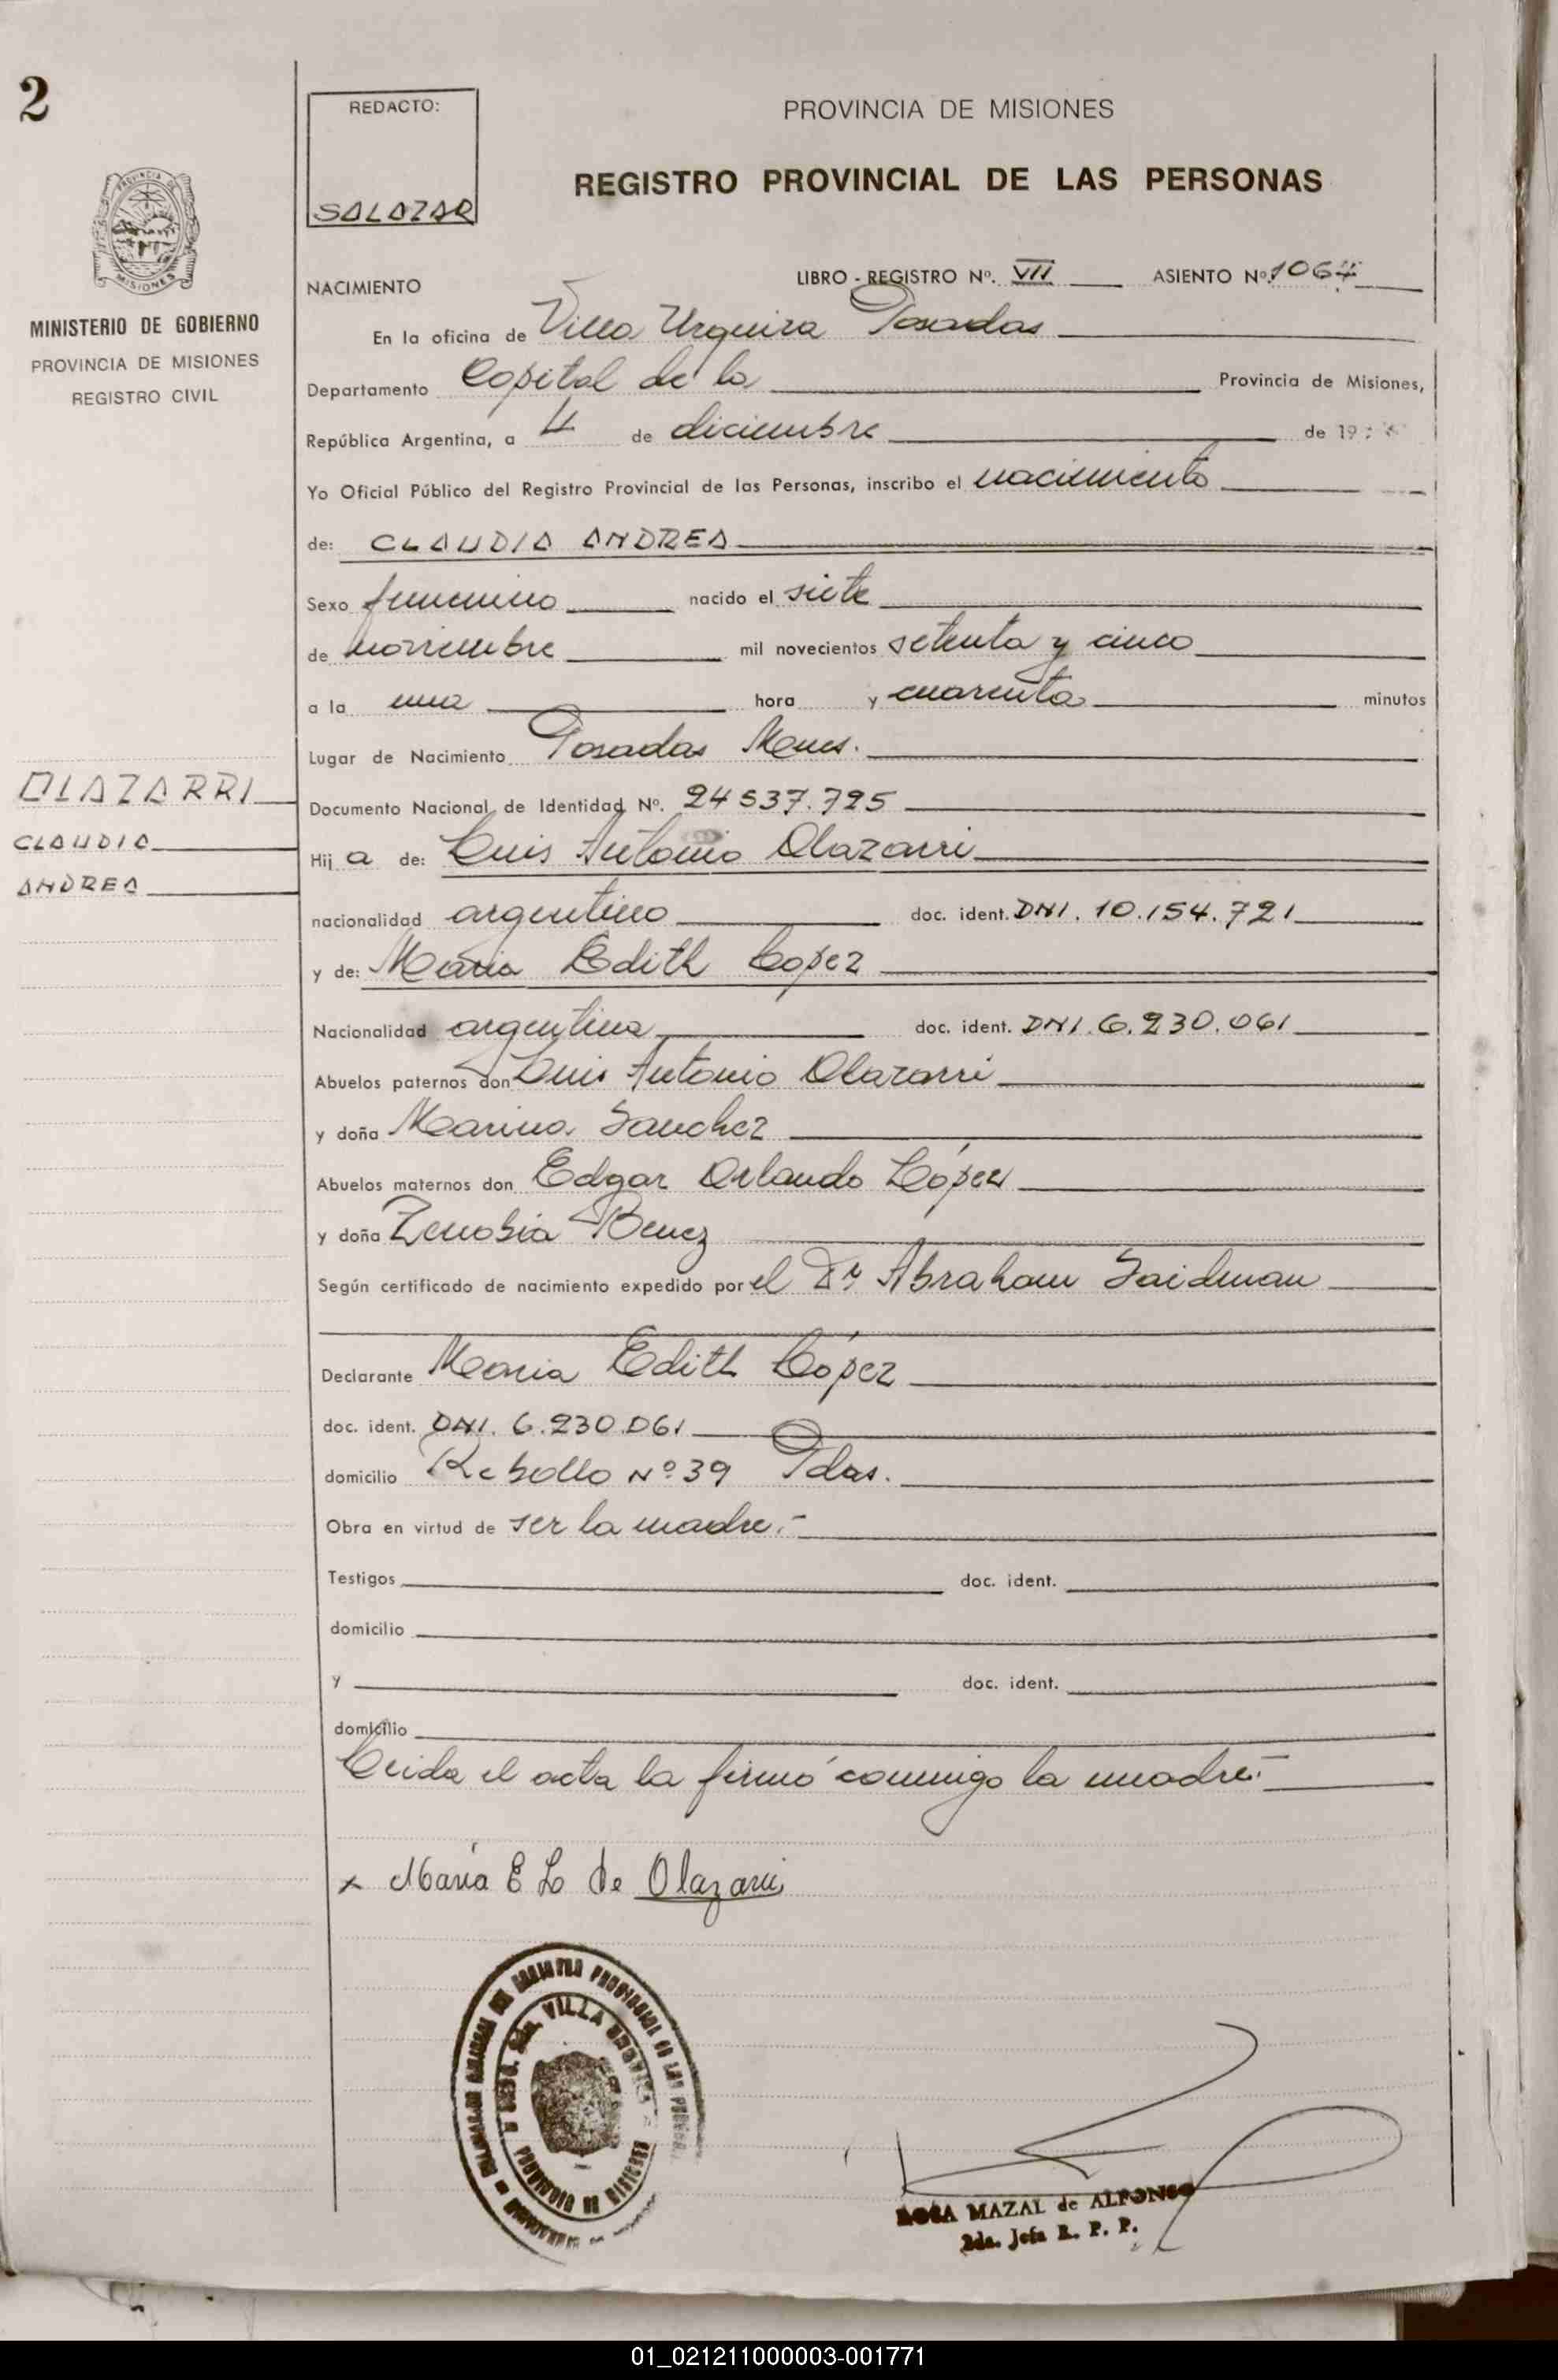 2
REDACTO:
SALAZAR
PROVINCIA DE MISIONES
REGISTRO PROVINCIAL DE LAS PERSONAS
PROVINCIA DE
MISIONES
MINISTERIO DE GOBIERNO
PROVINCIA DE MISIONES
REGISTRO CIVIL
NACIMIENTO
LIBRO - REGISTRO Nº. VII ASIENTO Nº 1064
En la oficina de Villa Urquiza Posadas
Departamento Capital de la Provincia de Misiones,
República Argentina, a 4 de diciembre de 19
Yo Oficial Público del Registro Provincial de las Personas, inscribo el nacimiento
de: CLAUDIA ANDREA
Sexo femenino nacido el siete
de noviembre mil novecientos setenta y cinco
a la una hora y cuarenta minutos
Lugar de Nacimiento Posadas Mnes.
OLAZARRI
CLAUDIA
ANDREA
Documento Nacional de Identidad Nº. 24537.795
Hij a de: Luis Antonio Olazarri
nacionalidad argentino doc. ident. DNI. 10.154.721
y de: Maria Edith Lopez
Nacionalidad argentina doc. ident. DNI. 6.230.061
Abuelos paternos don Luis Antonio Olazarri
y doña Marina Sanchez
Abuelos maternos don Edgar Orlando López
y doña Zenobia
Según certificado de nacimiento expedido por el Dr Abraham Saidman
Declarante Maria Edith López
doc. ident. DNI. 6.230.061
domicilio Rebollo Nº 39 Pdas.
Obra en virtud de ser la madre.-
Testigos doc. ident.
domicilio
y doc. ident.
domicilio
Leida el acta la firmó conmigo la madre.-
x María E L de Olazarri
REGISTRO PROVINCIAL DE LAS
VILLA URQUIZA
PROVINCIA DE MISIONES
ROSA MAZAL de ALFONSO
2da. Jefa R. P. P.
01_021211000003-001771